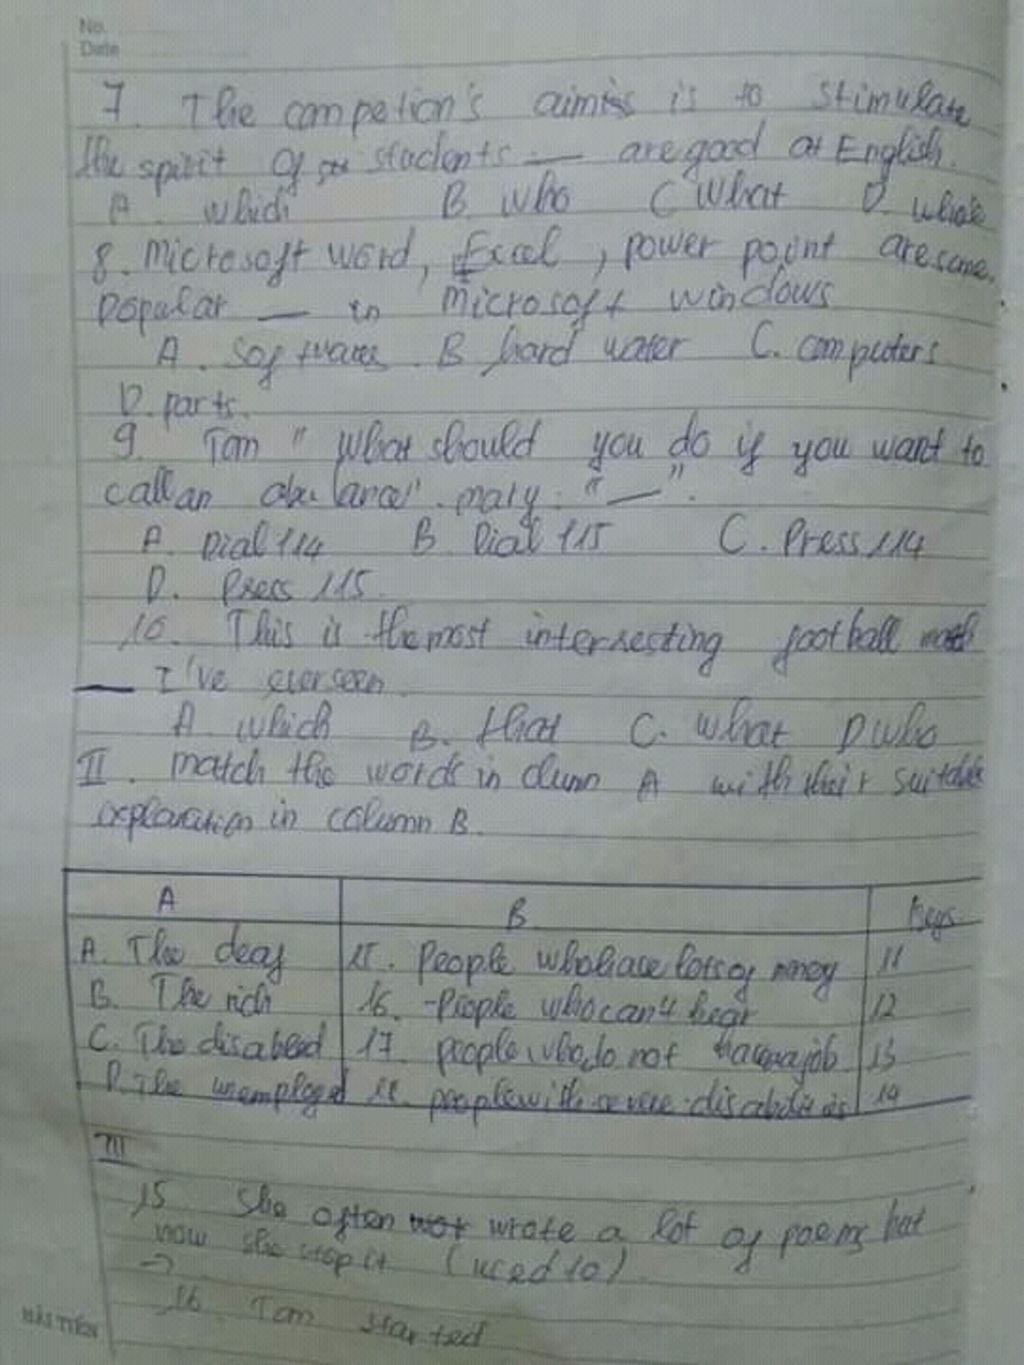 No.
Date
7. The competion's aimis is to stimulate
the spirit of students — are good at English.
A. which B. who C What D. whose
8. Microsoft word, Excel, power point are some
popular — in Microsoft windows
A. Softwares. B hard water C. computers
D. parts.
9. Tom " What should you do if you want to
call an mary: " — ".
A. Dial 114 B. Dial 115 C. Press 114
D. Press 115
10. This is the most interresting football match
— I've ever seen
A which B. that C. what D who
II. match the words in clumn A with their suitable
explanation in column B.
A B Keys
A. The deaf 15. People who have lots of money 11
B. The rich 16. - People who can't hear 12
C. The disabled 17. people who do not have a job 13
D. The unemployed people with severe disabilities 14
III
15 She often wrote a lot of poems but
now she stop it (used to)
→
16 Tom started
HẢI TIẾN